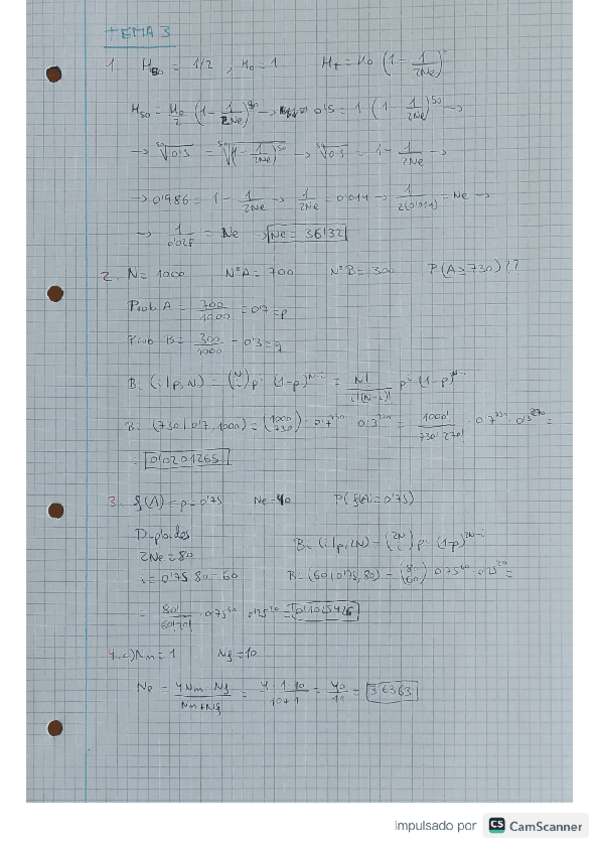 TEMA 3
1. H50 = 1/2 , H0 = 1 Ht = H0 (1 - 1/2Ne)^t
H50 = H0/2 (1 - 1/2Ne)^50 → 0'5 = 1 (1 - 1/2Ne)^50 →
→ ⁵⁰√0'5 = ⁵⁰√(1 - 1/2Ne)^50 → ⁵⁰√0'5 = 1 - 1/2Ne →
→ 0'986 = 1 - 1/2Ne → 1/2Ne = 0'014 → 1/2(0'014) = Ne →
→ 1/0'028 = Ne → Ne = 36'32
2. N = 1000 NºA = 700 NºB = 300 P(A ≥ 730)??
Prob A = 700/1000 = 0'7 = p
Prob B = 300/1000 = 0'3 = q
Bi (i | p, N) = (N i) p^i (1-p)^N-i = N!/i!(N-i)! p^i (1-p)^N-i
Bi (730 | 0'7, 1000) = (1000 730) · 0'7^730 · 0'3^270 = 1000!/730! 270! · 0'7^730 · 0'3^270 =
= 0'0201265
3. f(A) = p = 0'75 Ne = 40 P(f(A) = 0'75)
Diploides
2Ne = 80 Bi (i | p, 2N) = (2N i) p^i (1-p)^2N-i
i = 0'75 · 80 = 60 Bi (60 | 0'75, 80) = (80 60) 0'75^60 · 0'25^20 =
= 80!/60! 20! · 0'75^60 · 0'25^20 =
4. c) Nm = 1 Nf = 10
Ne = 4Nm · Nf/Nm + Nf = 4 · 1 · 10/10 + 1 = 40/11 = 3'6363
impulsado por CS CamScanner